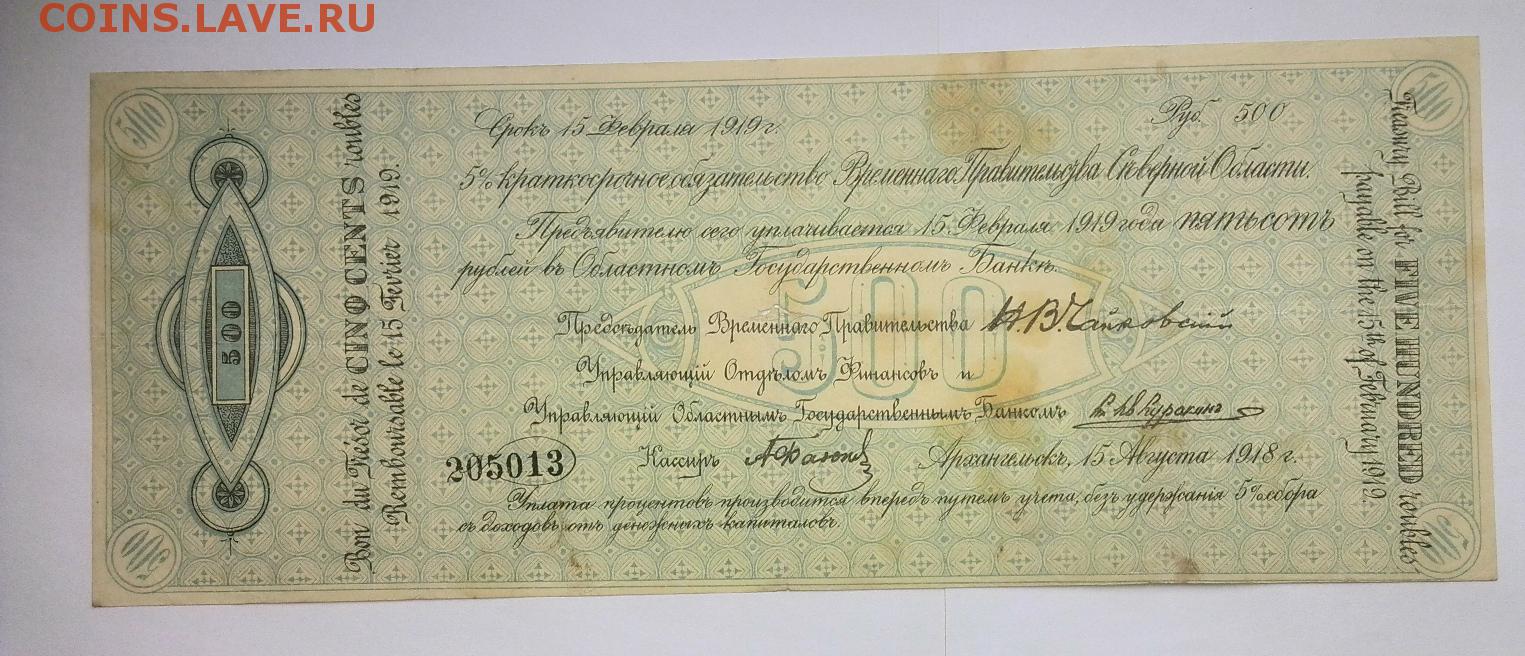 COINS.LAVE.RU
500
500
Срокъ 15 Февраля 1919 г.
Руб. 500
5% краткосрочное обязательство Временнаго Правительства Сѣверной Области.
Предъявителю сего уплачивается 15 Февраля 1919 года пятьсотъ
рублей въ Областномъ Государственномъ Банкѣ.
500
Предсѣдатель Временнаго Правительства Н.В. Чайковскій
Управляющій Отдѣломъ Финансовъ и
Управляющій Областнымъ Государственнымъ Банкомъ Куракинъ
205013
Кассиръ
Архангельскъ, 15 Августа 1918 г.
Уплата процентовъ производится впередъ путемъ учета, безъ удержанія 5% сбора
съ доходовъ отъ денежныхъ капиталовъ.
500
Bon du Trésor de CINQ CENTS roubles
Remboursable le 15 Fevrier 1919.
Treasury Bill for FIVE HUNDRED roubles
payable on the 15th of February 1919.
500
500